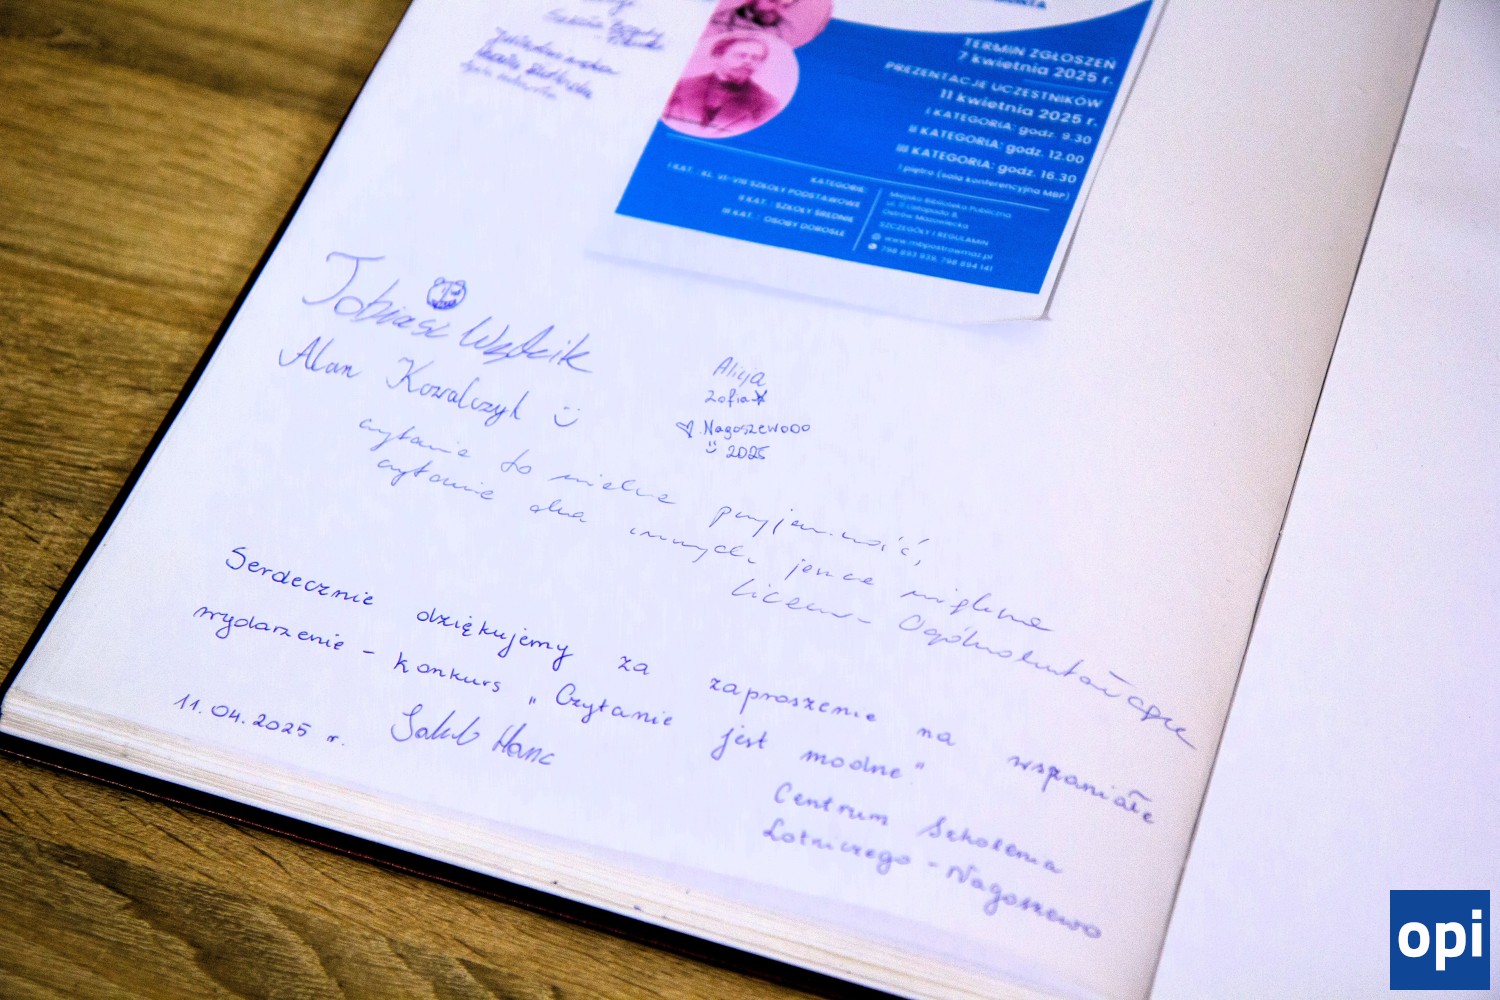 TERMIN ZGŁOSZEŃ
7 kwietnia 2025 r.
PREZENTACJE UCZESTNIKÓW
11 kwietnia 2025 r.
I KATEGORIA: godz. 9.30
II KATEGORIA: godz. 12.00
III KATEGORIA: godz. 16.30
I piętro (sala konferencyjna MBP)
KATEGORIE:
I KAT.: KL. VI-VIII SZKOŁY PODSTAWOWE
II KAT.: SZKOŁY ŚREDNIE
III KAT.: OSOBY DOROSŁE
Miejska Biblioteka Publiczna
ul. 11 Listopada 8,
Ostrów Mazowiecka
SZCZEGÓŁY I REGULAMIN
www.mbpostrowmaz.pl
798 893 939, 798 894 141
Tobiasz Wójcik
Alan Kowalczyk
Alicja
Zofia
Nagoszewooo
2025
czytanie to wielka przyjemność,
czytanie dla innych jeszcze większa
Liceum Ogólnokształcące
Serdecznie dziękujemy za zaproszenie na wspaniałe
wydarzenie - konkurs „Czytanie jest modne"
11.04.2025 r.
Jakub Hanc
Centrum Szkolenia
Lotniczego - Nagoszewo
opi